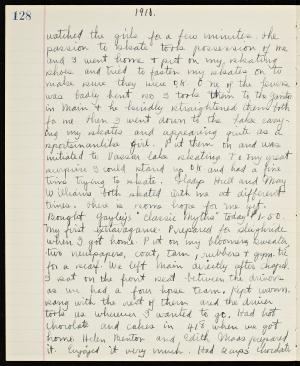 128
1918.
watched the girls for a few minutes. The
passion to skate took possession of me
and I went home & put on my skating
shoes and tried to fasten my skates on to
make sure they were O.K. One of the
was badly bent so I took them to the janitor
in Main & he kindly straightened them both
for me. Then I went down to the lake carry-
ing my skates and appearing quite as a
sportsmanlike girl. Put them on and was
initiated to Vassar Lake skating. To my great
surprise I could stand up O.K. and had a fine
time trying to skate. Gladys Hill and May
Williams both skated with me at different
times. There is room hope for me yet.
Bought Gayley's "Classic Myths" today $1.50.
My first extravagance. Prepared for sleighride
when I got home. Put on my bloomers, sweater,
two newspapers, coat, tam, rubbers & gym. tie
for a scarf. We left Main directly after chapel.
I sat on the front seat between the drivers
as we had a four horse team. Kept warm,
sang with the rest of them and the driver
took us wherever I wanted to go. Had hot
chocolate and cakes in 418 when we got
home. Helen Benton and Edith Maas prepared
it. Enjoyed it very much. Had cups chocolate